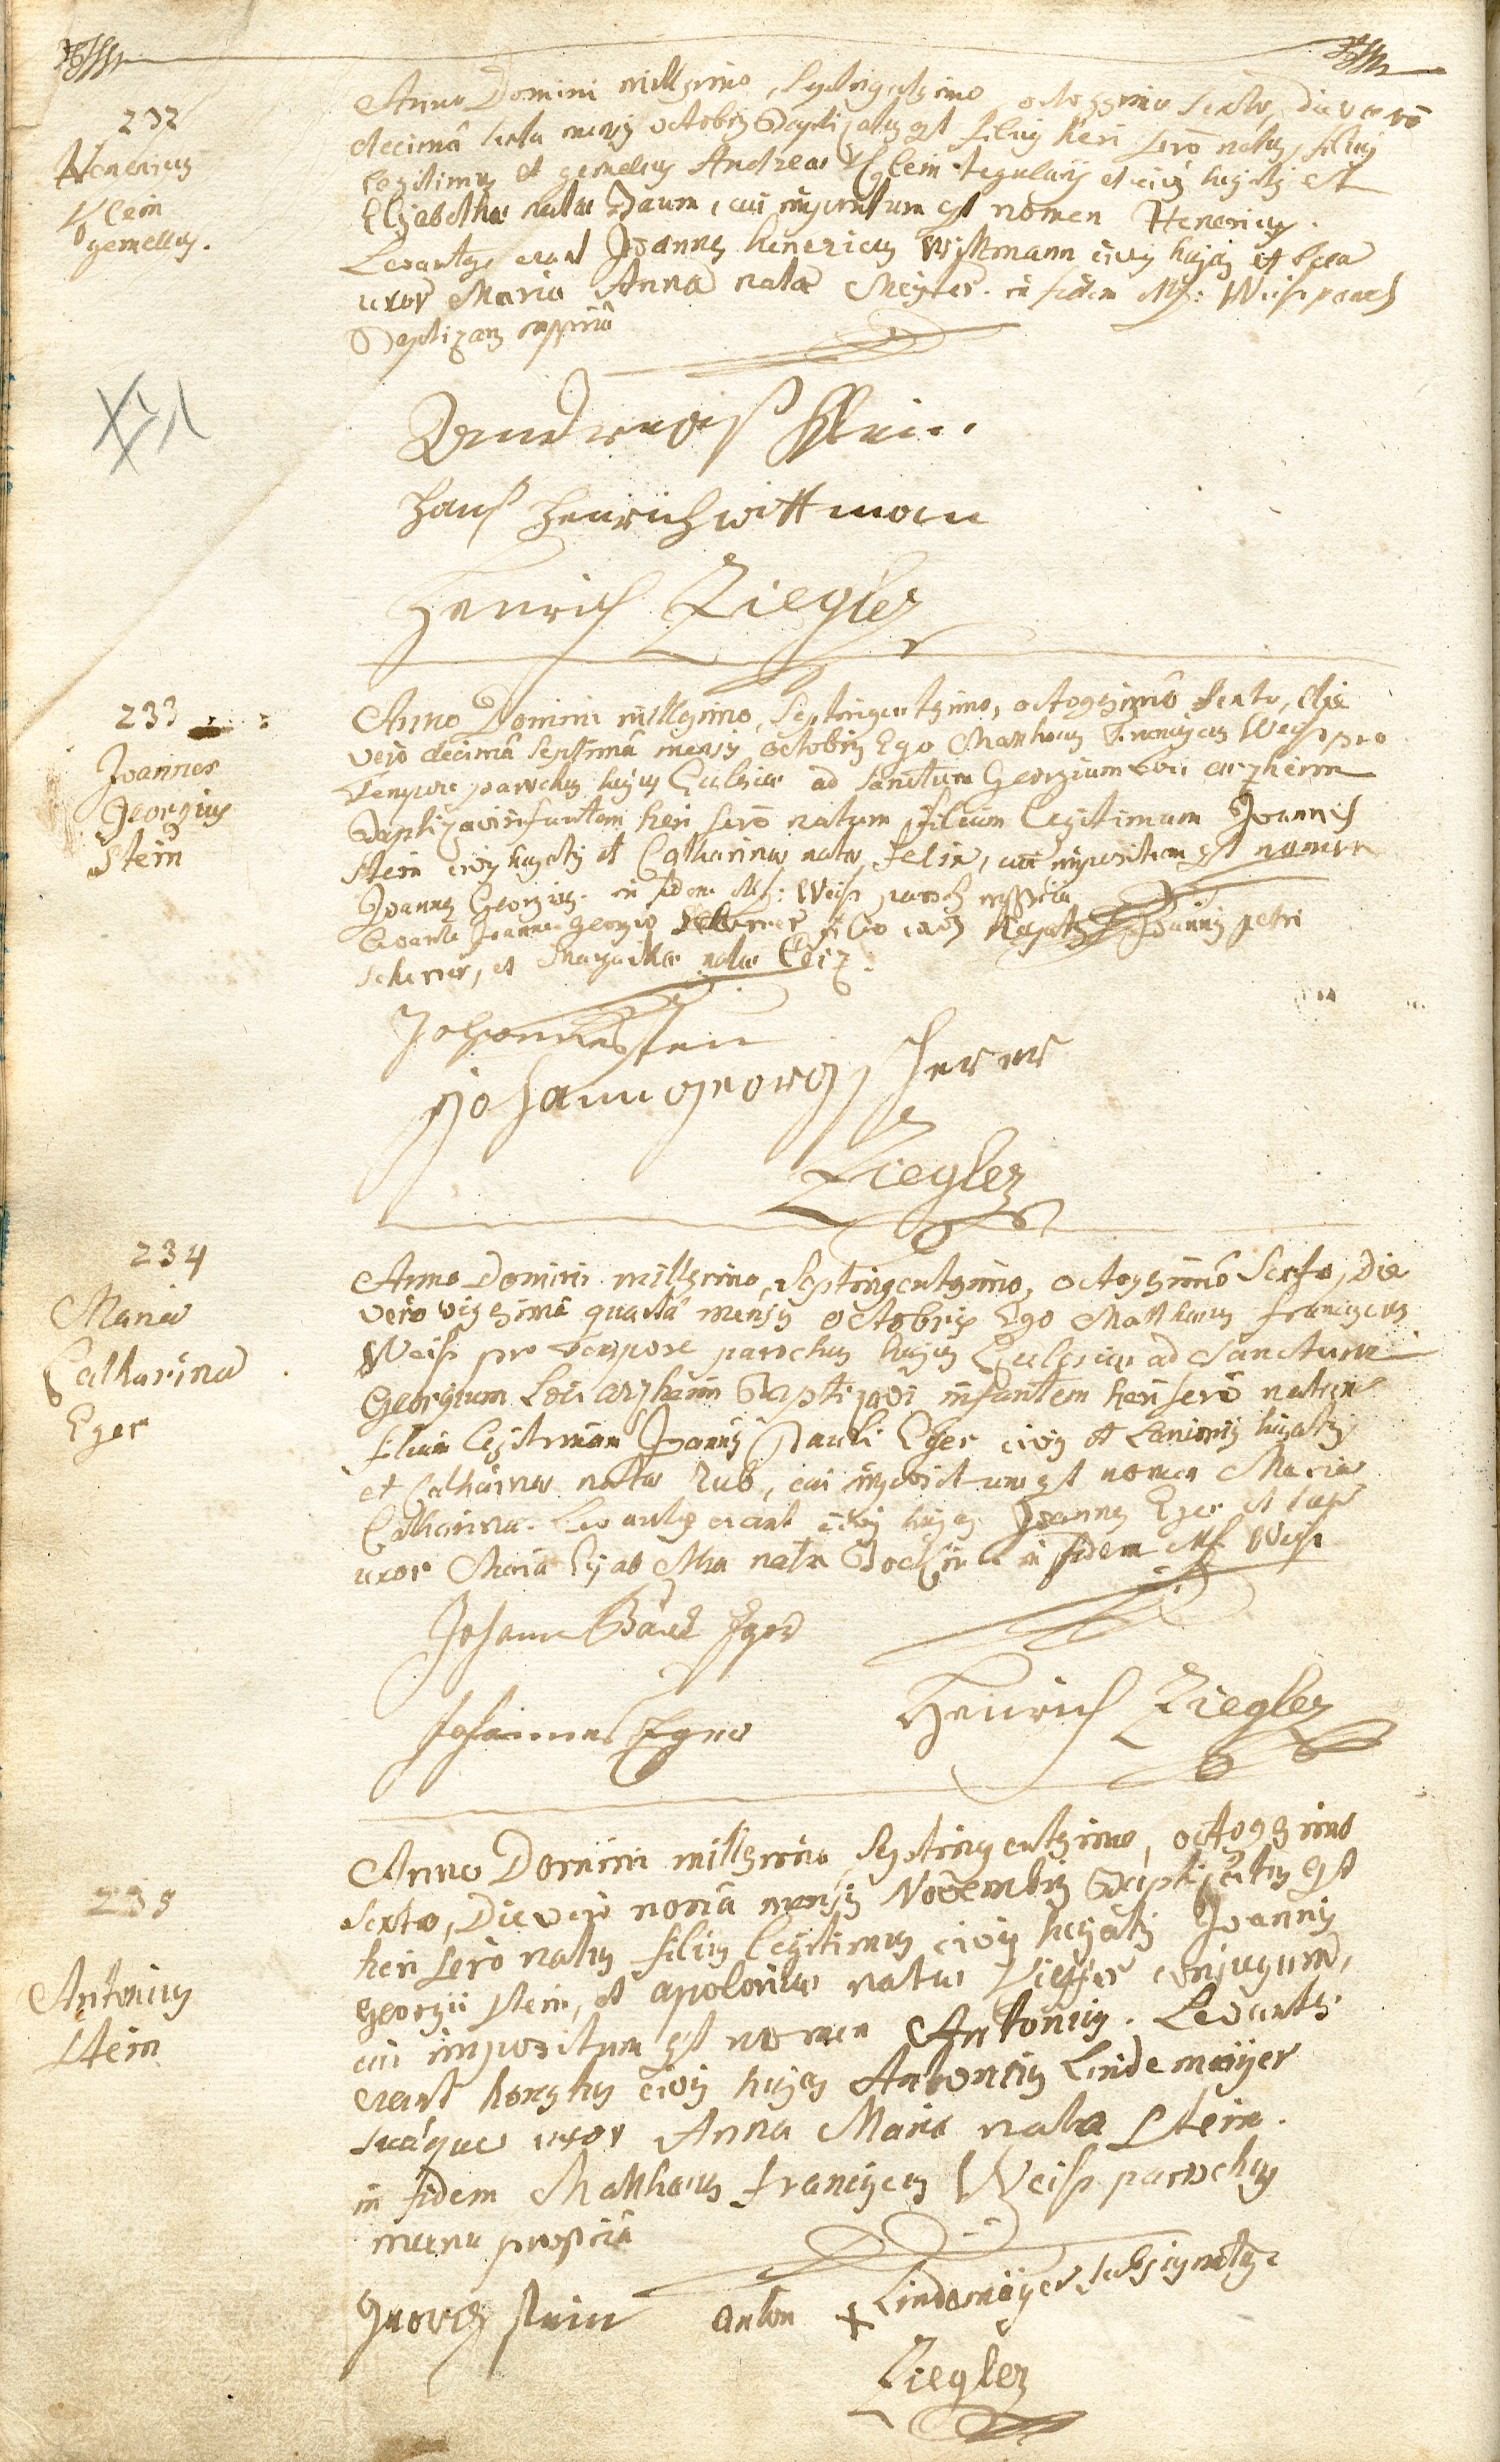 232
Henericus
Klein
gemellus.
Anno Domini millesimo, Septingentesimo octogesimo Sexto, die vero
decimâ sexta mensis octobris Baptizatus est filius heri sero natus, filius
legitimus et gemellus Andreae Klein tegularij et civis hujatis et
Elisabethae natae Daum, cui impositum est nomen Henericus.
Levantes erant Joannes henericus Wittmann civis hujas et sua
uxor Maria Anna nata in fidem Mf: Weiss paroch
Baptizans mppriâ
Andreas Klein
Hans Henrich wittman
Henrich Ziegler
233
Joannes
Georgius
Stein
Anno Domini millesimo, Septingentesimo, octogesimô Sexto, die
vero decimâ septimâ mensis octobris Ego Matthaeus Franciscus Weiss pro
Tempore parochus hujus Ecclesiae ad Sanctum Georgium Loci arzheim
Baptizavi infantem heri serô natum filium legitimum Joannis
Stein civis hujatis et Catharinae natae Felix, cui impositum est nomen
Joannes Georgius. in fidem Mf: Weiss paroch mppria
Levante Joanne Georgio Scherrer filio civis hujatis Joannis petri
scherrer, et natae
Johannes Stein
Johann georg scherer
Ziegler
234
Maria
Catharina
Eger
Anno Domini millesimo, Septingentesimo, octogesimô Sexto, Die
vero vigesimâ quartâ mensis octobris Ego Matthaeus Franciscus
Weiss pro Tempore parochus hujus Ecclesiae ad Sanctum
Georgium Loci arzheim Baptizavi infantem heri serô natam
filiam legitimam Joannis Pauli Eger civis et Lanionis hujatis
et Catharinae natae Rub, cui impositum est nomen Maria
Catharina. Levantes erant civis hujas Joannes Eger et sua
uxor Maria Elisabetha nata in fidem Mf. Weiss
Johann Paul Eger
Johannes Eger
Henrich Ziegler
235
Antonius
Stein
Anno Domini millesimo, Septingentesimo, octogesimo
Sexto, Die vero nonâ mensis Novembris Baptizatus est
heri serò natus filius legitimus civis hujatis Joannis
Georgii Stein, et apoloniae natae conjugum,
cui impositum est nomen Antonius. Levantes
erant honestus civis hujas Antonius Lindemaijer
suáque uxor Anna Maria nata Stein.
in fidem Matthaeus Franciscus Weiss parochus
manu propriâ
Georg stein anton + Lindemaijer subsignantis
Ziegler